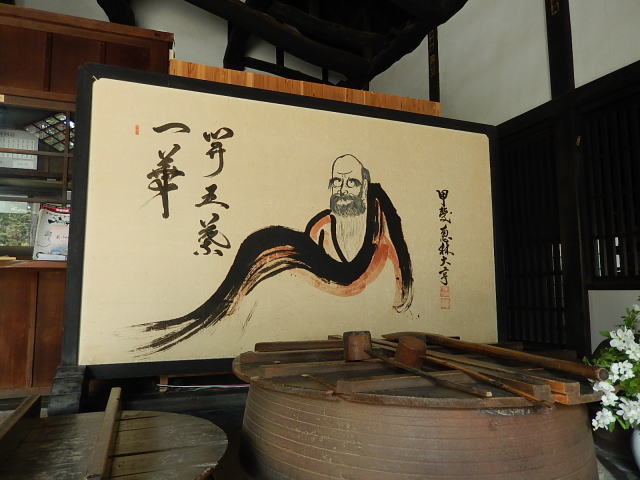 一華
開五葉
甲斐恵林大亨